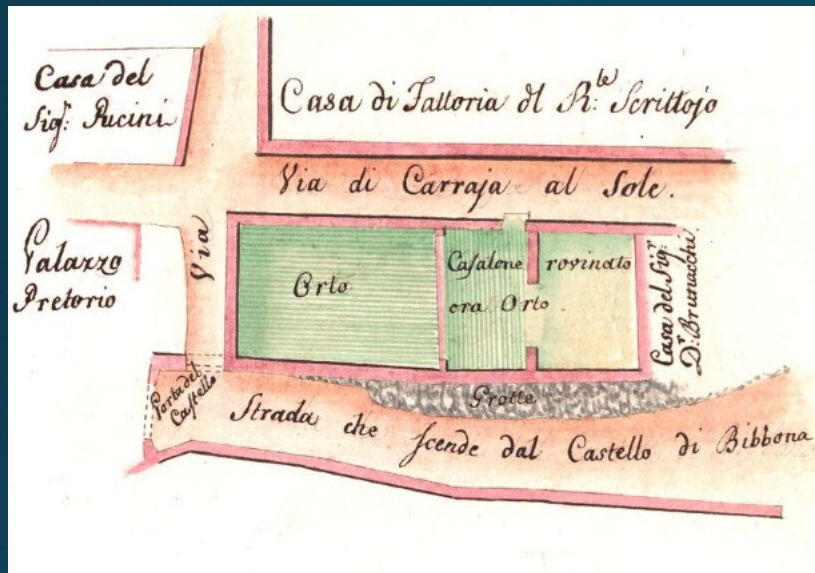 Casa del
Sig.r Pucini
Casa di Fattoria dl R.le Scrittojo
Via di Carraja al Sole.
Palazzo
Pretorio
Via
Orto
Casalone rovinato
ora Orto
Casa del Sig.r
D.r Brunacchi
Porta del
Castello
Grotte
Strada che scende dal Castello di Bibbona